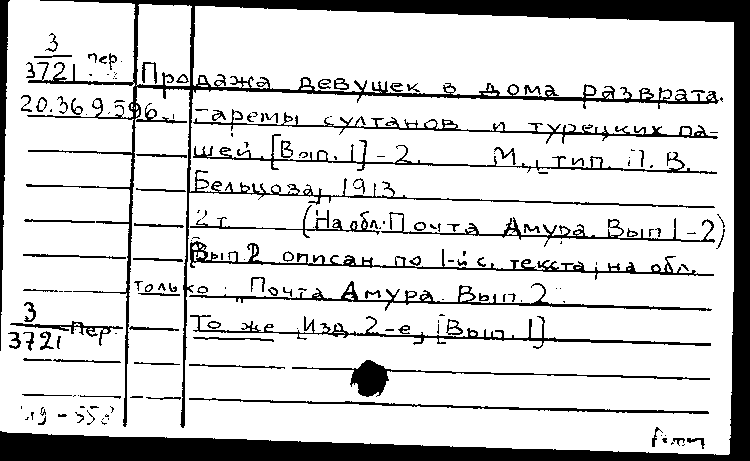 3
3721 пер.
Продажа девушек в дома разврата.
20.36.9.596. гаремы султанов и турецких па-
шей. [Вып. 1] - 2. М., тип. П. В.
Бельцова, 1913.
2 т. (На обл: Почта Амура. Вып 1-2)
Вып 2 описан по 1-й с. текста; на обл.
только: Почта Амура. Вып. 2.
3
3721 пер.
То же Изд. 2-е, [Вып. 1]